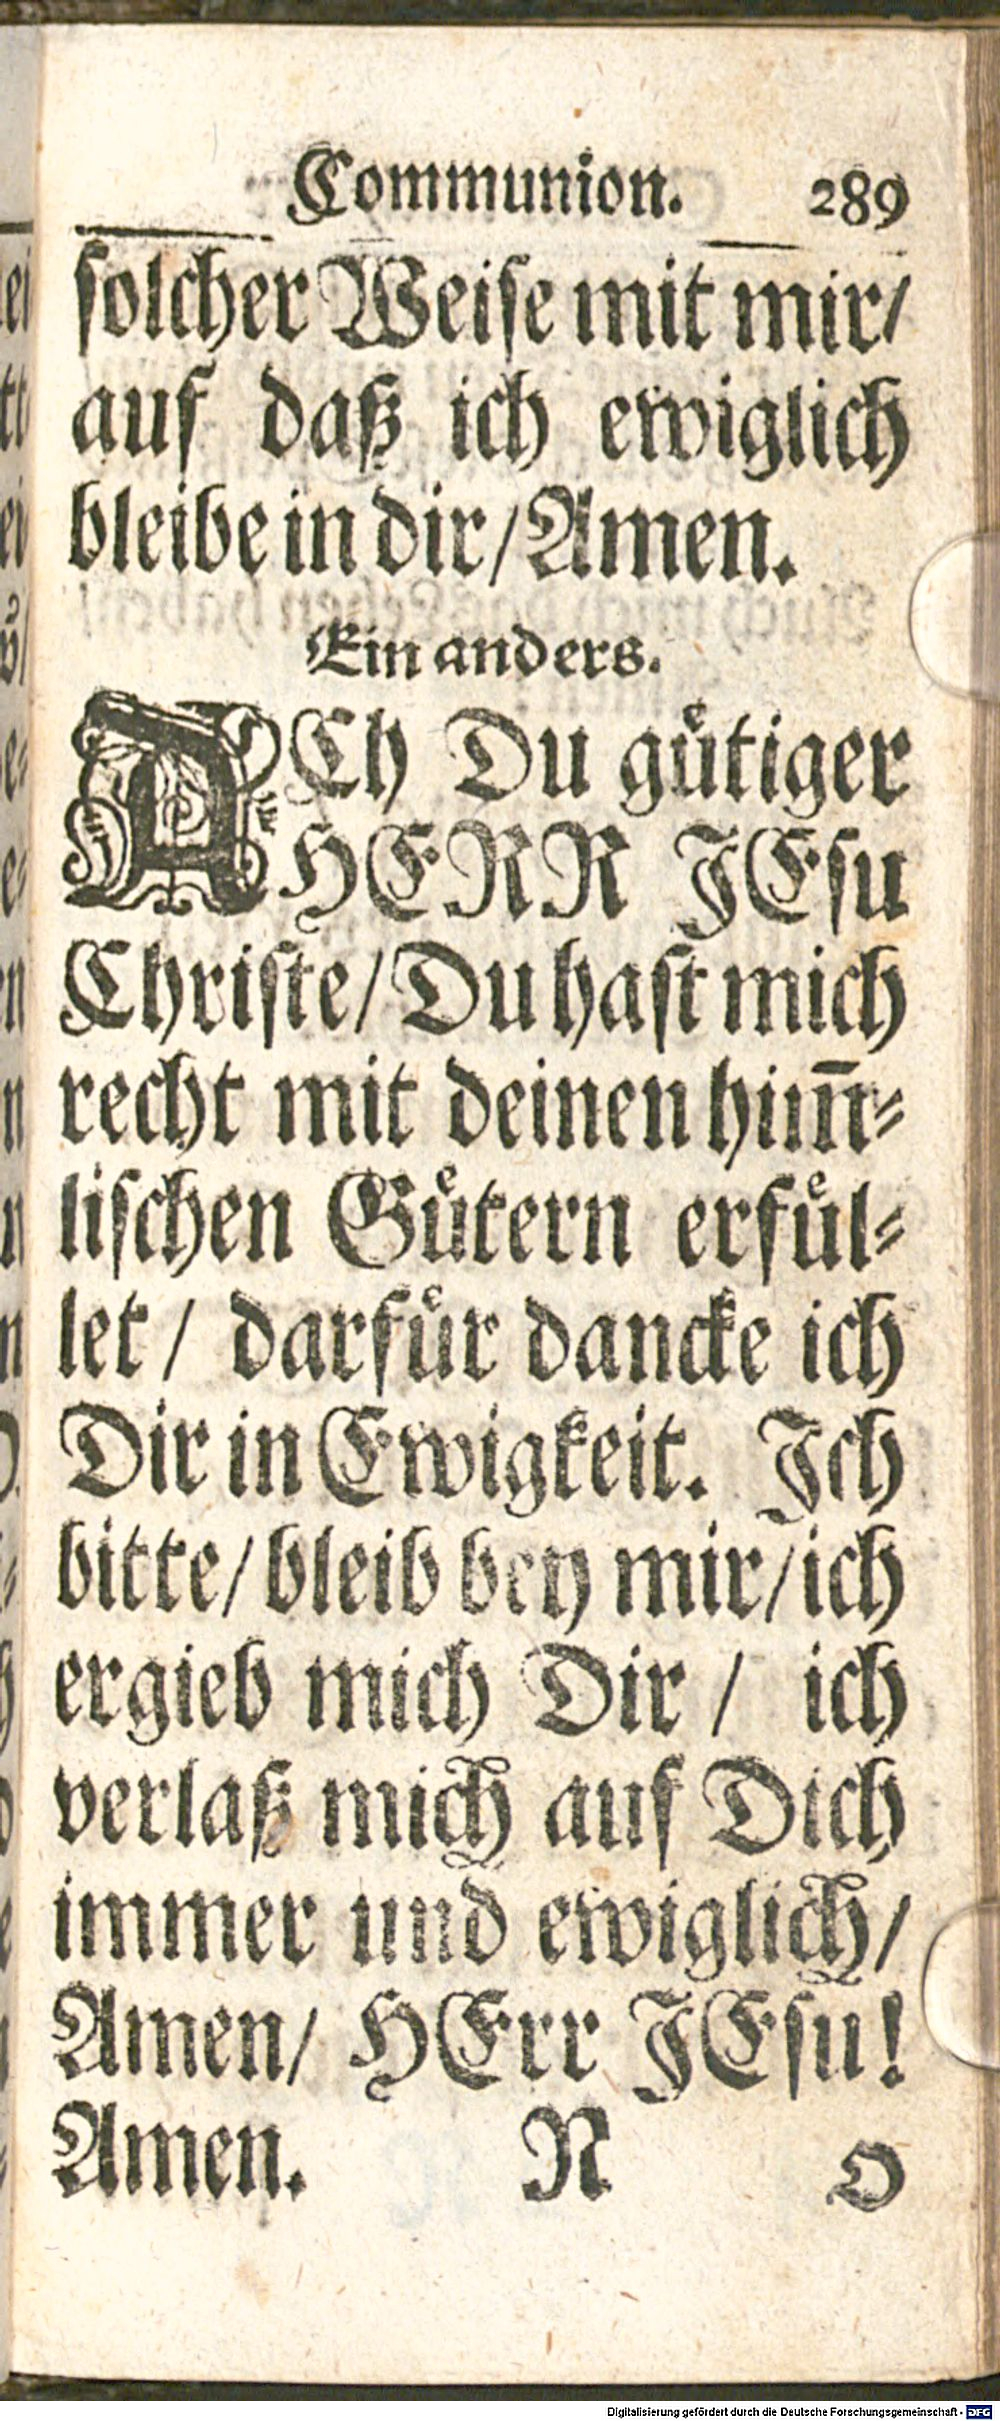 Communion. 289
ſolcher Weiſe mit mir/
auf daß ich ewiglich
bleibe in dir/ Amen.
Ein anders.
ACh Du guͤtiger
HERR JEſu
Chriſte/ Du haſt mich
recht mit deinen him̅⸗
liſchen Guͤtern erfuͤl⸗
let/ darfuͤr dancke ich
Dir in Ewigkeit. Ich
bitte/ bleib bey mir/ ich
ergieb mich Dir / ich
verlaß mich auf Dich
immer und ewiglich/
Amen/ HErr JEſu!
Amen. N O
Digitalisierung gefördert durch die Deutsche Forschungsgemeinschaft - DFG